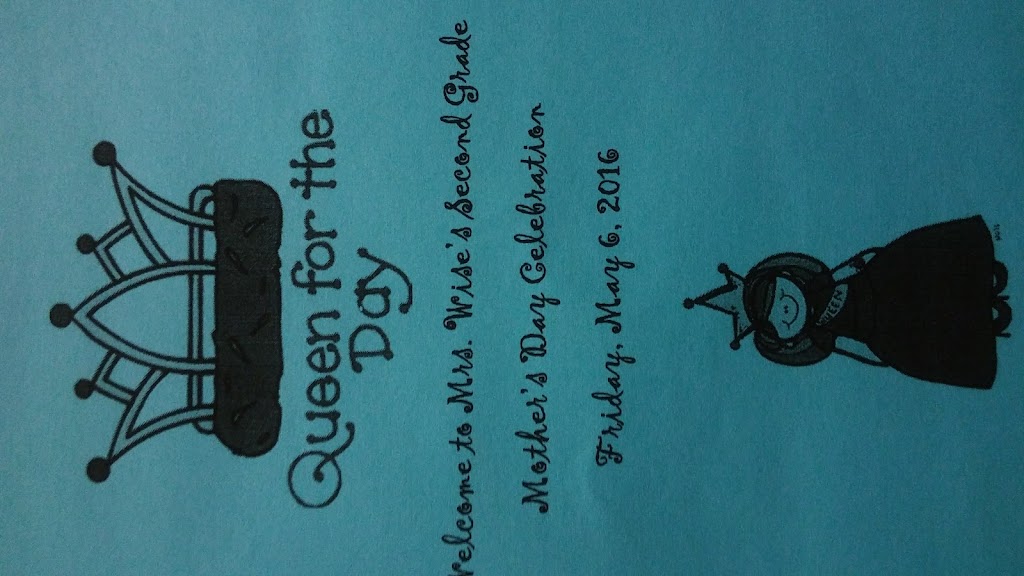 Queen for the
Day
Welcome to Mrs. Wise's Second Grade
Mother's Day Celebration
Friday, May 6, 2016
QUEEN